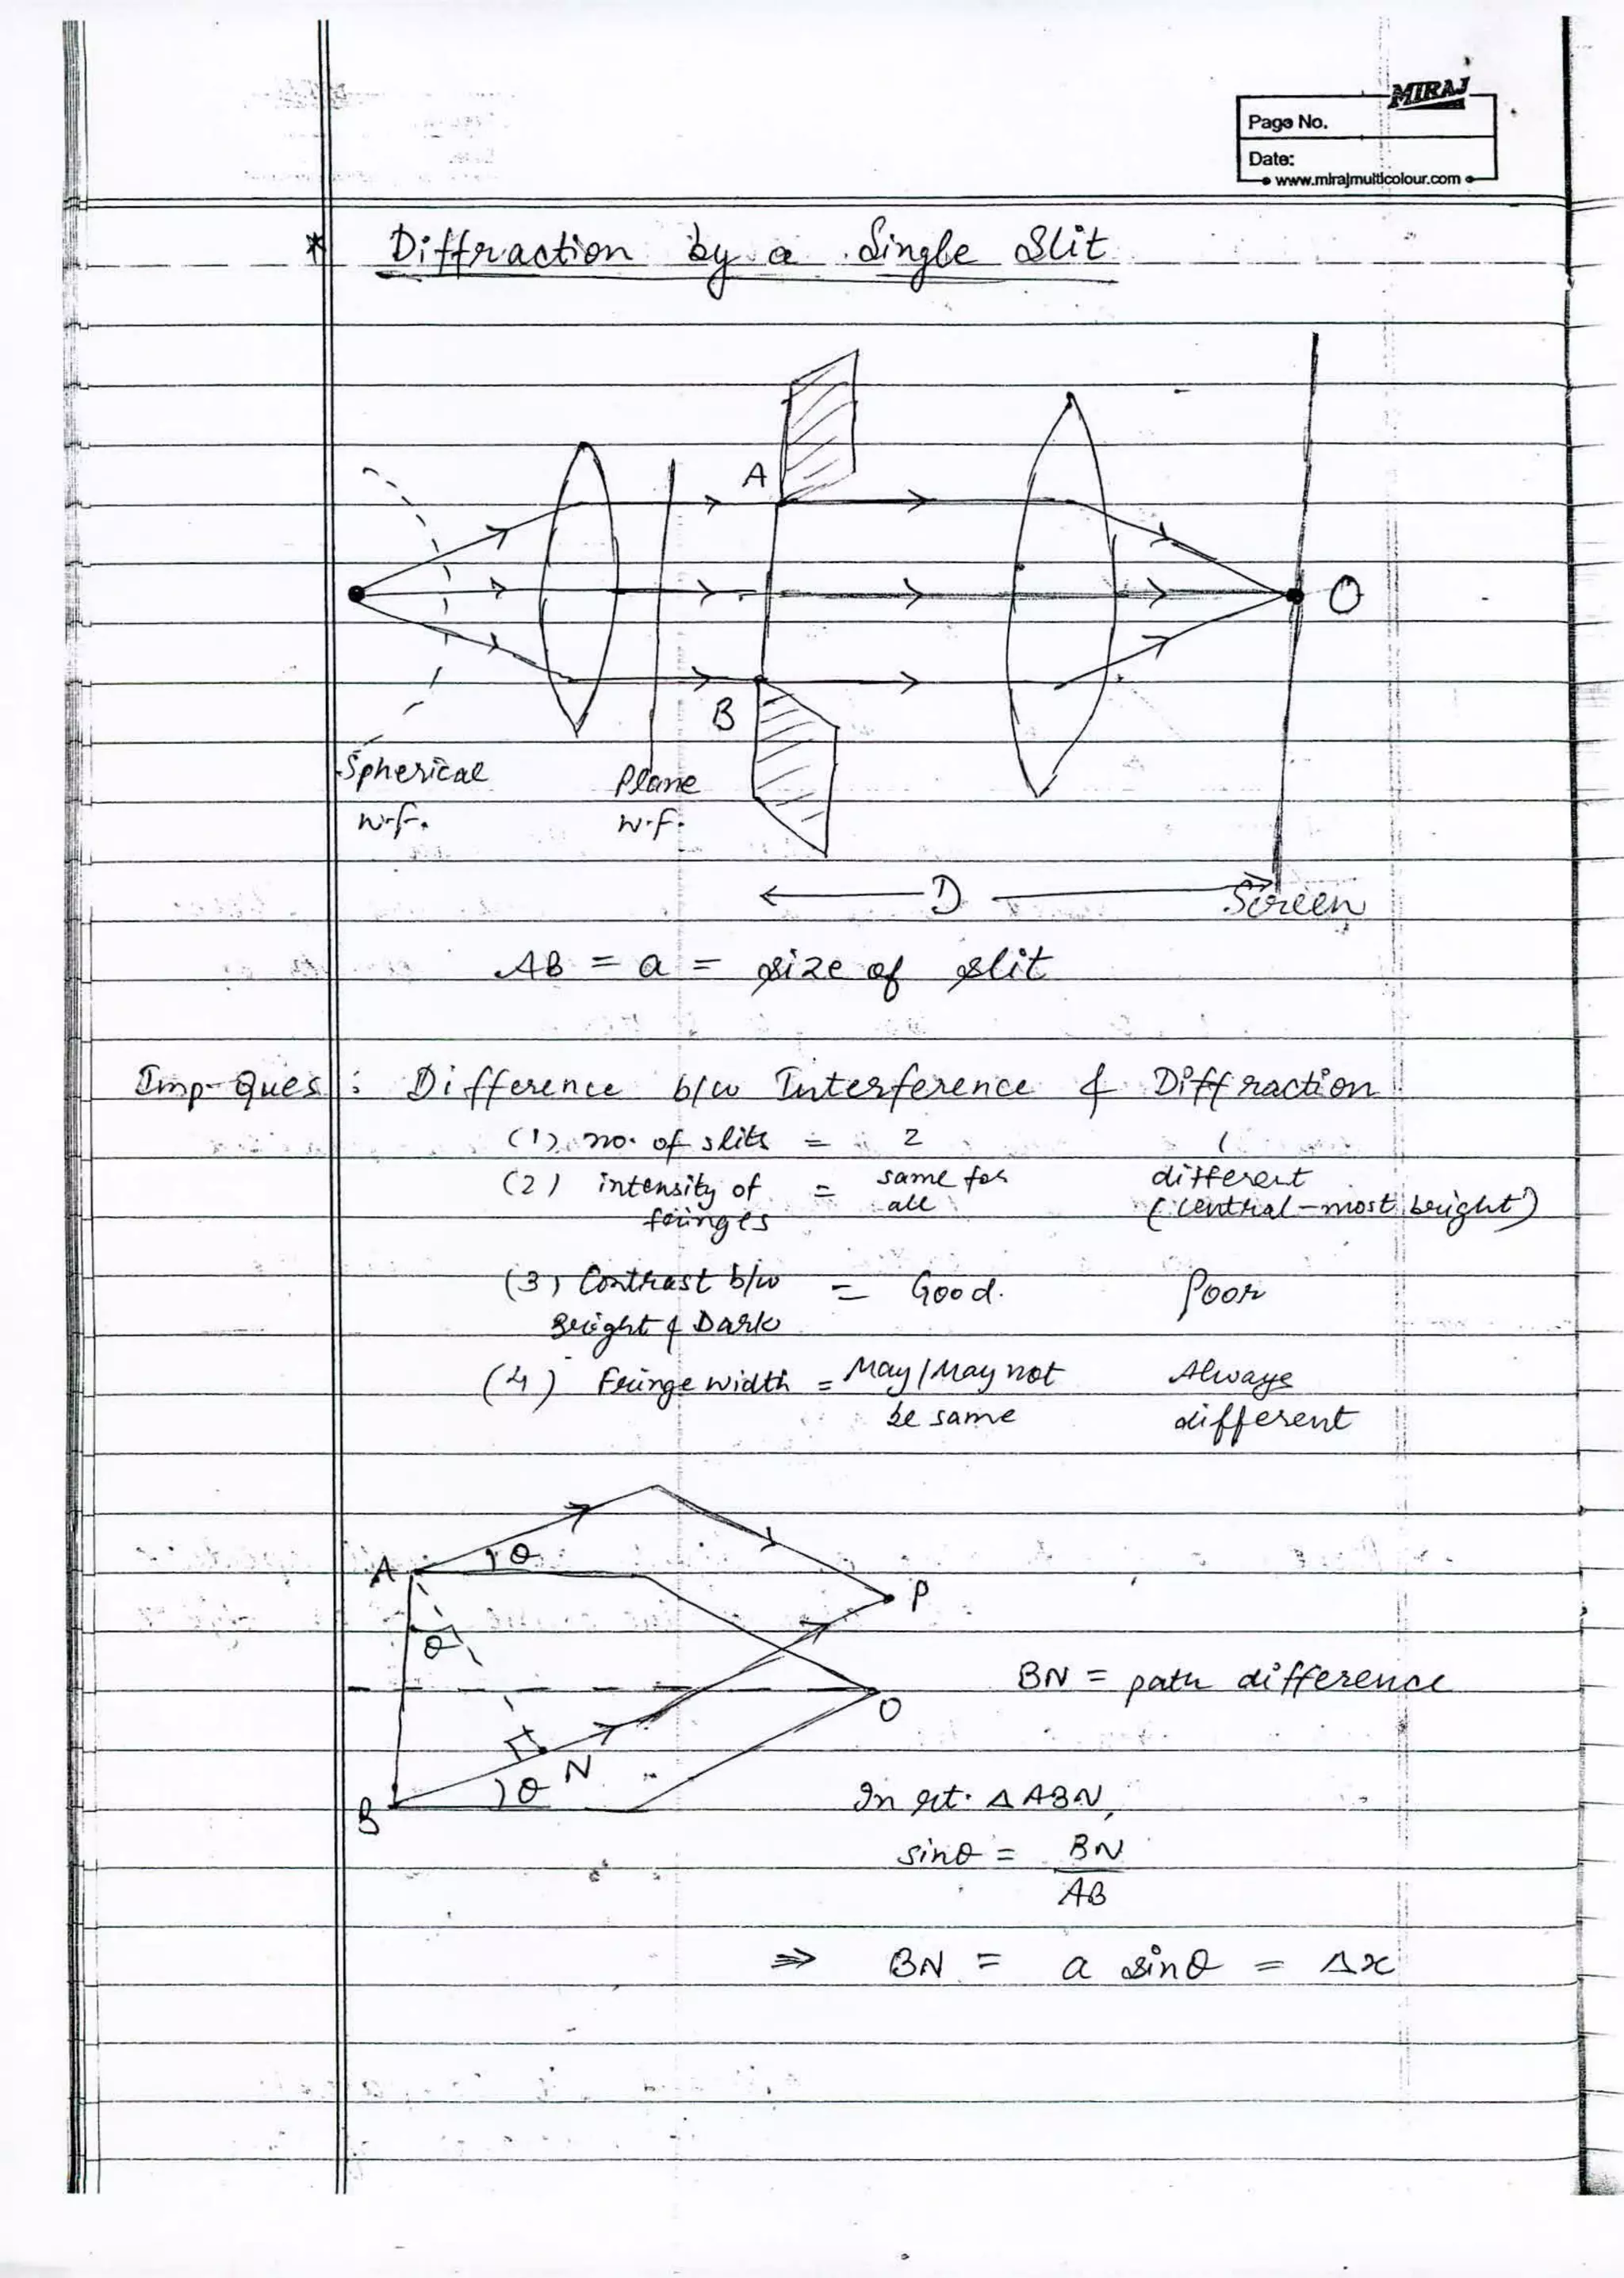 MIRAJ
Page No.
Date:
www.mirajmulticolour.com
* Diffraction by a Single Slit
A
O
B
Spherical
w.f.
Plane
w.f.
D
Screen
AB = a = size of slit
Imp-Ques : Difference b/w Interference & Diffraction
(1) no. of slits = 2 1
(2) intensity of fringes = same for all different (central - most bright)
(3) Contrast b/w Bright & Dark = Good. Poor
(4) Fringe width = May/May not be same Always different
A θ
P
θ
BN = path difference
O
N
θ
B
In rt. Δ ABN,
sinθ = BN
AB
⇒ BN = a sinθ = Δx